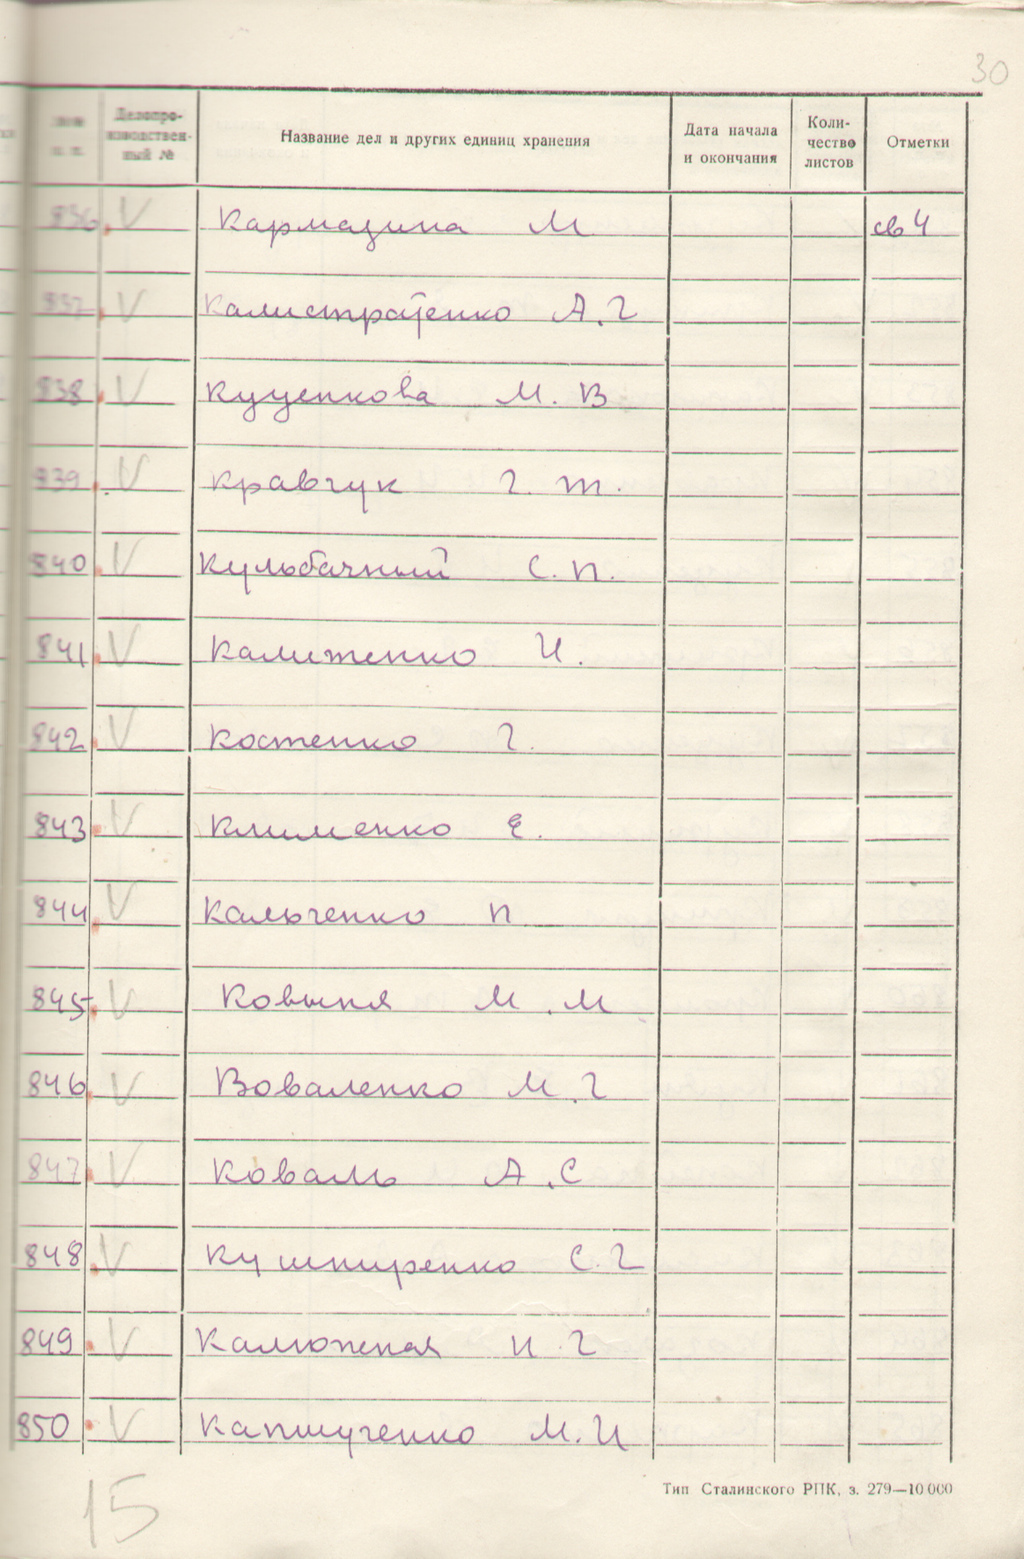 30
Делопро- Коли-
изводствен- Название дел и других единиц хранения Дата начала чество Отметки
п. п. ный № и окончания листов
836 V Кармазина М св 4
837 V Калистратенко А.Г
838 V Куценкова М. В
839 V Кравчук Г. Т.
840 V Кульбачный С.П.
841 V Калиженко И.
842 V Костенко Г.
843 V Клименко Е.
844 V Кальченко П
845 V Ковыня М.М
846 V Воваленко М.Г
847 V Коваль А.С
848 V Кушниренко С.Г
849 V Калюжная Н.Г
850 V М.И
15
Тип Сталинского РПК, з. 279—10 000